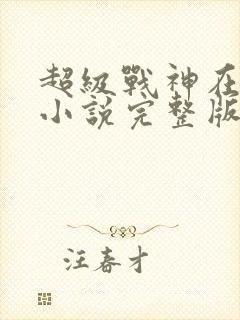 超級戰神在
小說完整版
汪春才